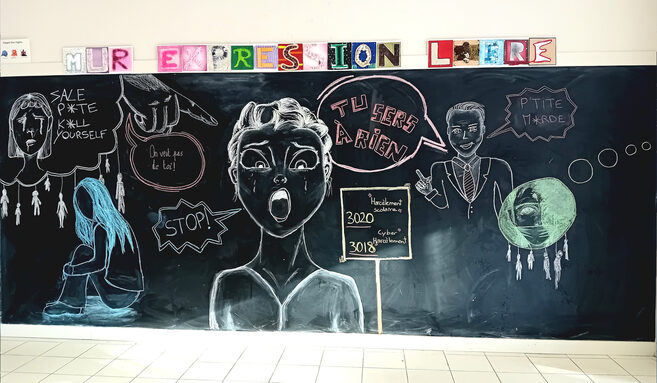 MUR EXPRESSION LIBRE
SALE
P*TE
K*LL
YOURSELF
On veut pas
de toi!
STOP!
TU SERS
À RIEN
P'TITE
M*RDE
"Harcèlement
scolaire"
3020
Cyber
Harcèlement"
3018